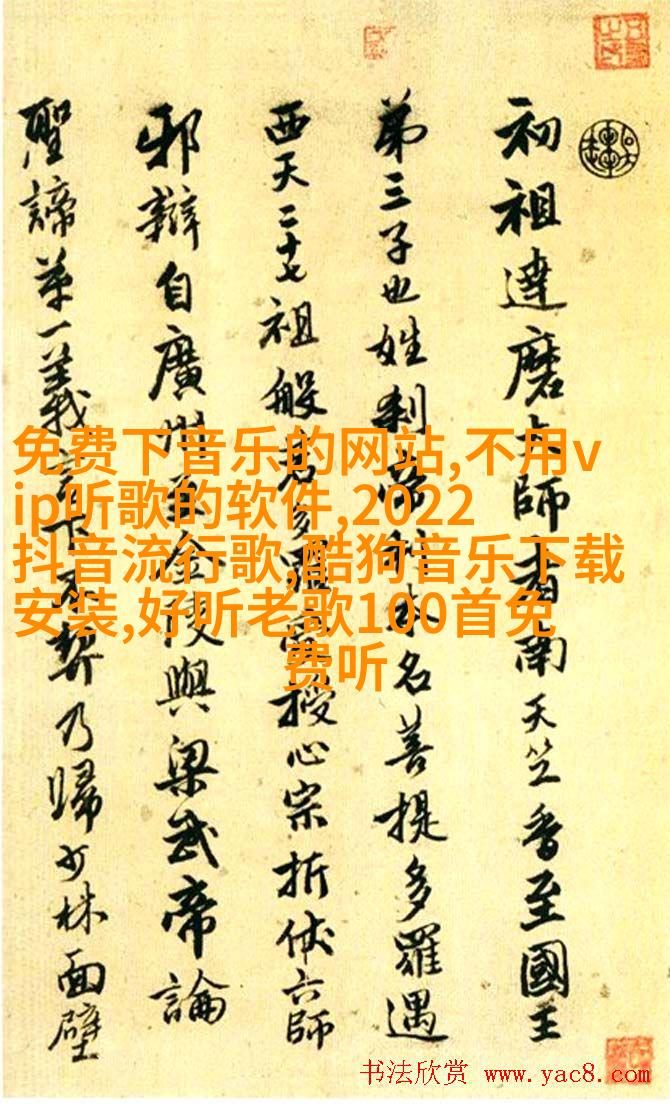 初祖達磨大師者南天竺香至國王
第三子也姓刹帝利本名菩提多羅遇
西天二十七祖般若多羅密授心宗折伏六師
邪辯自廣州至金陵與梁武帝論
聖諦第一義言下不契乃歸少林面壁
免费下音乐的网站,不用v
ip听歌的软件,2022
抖音流行歌,酷狗音乐下载
安装,好听老歌100首免
费听
书法欣赏 www.yac8.com